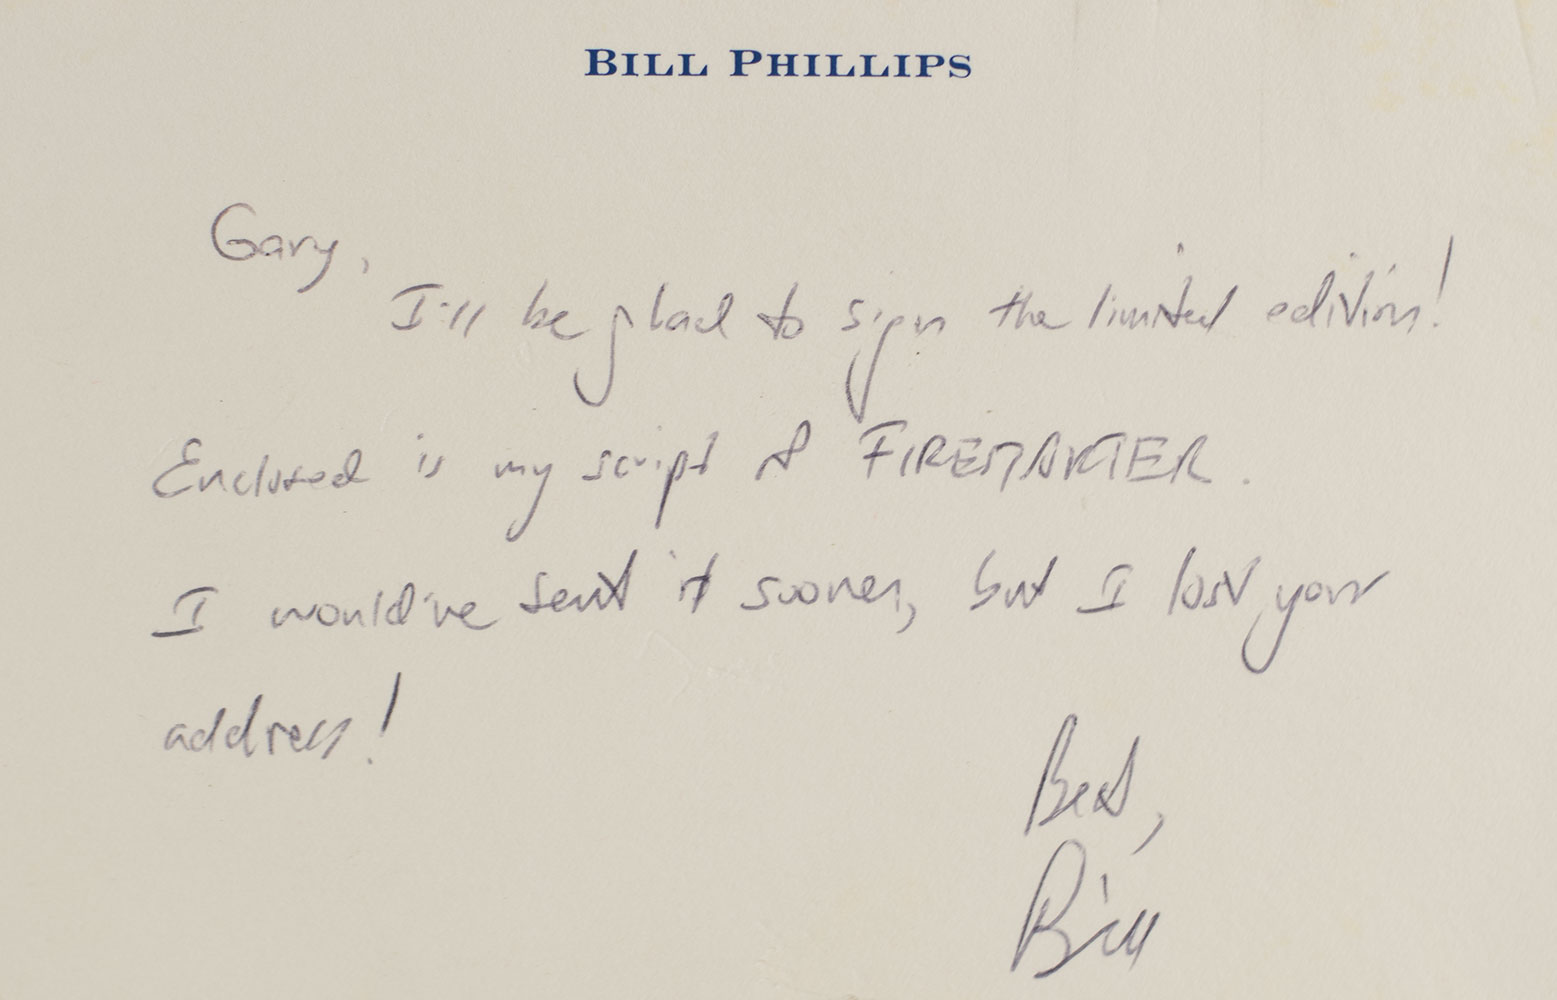 BILL PHILLIPS
Gary,
I'll be glad to sign the limited edition!
Enclosed is my script of FIRESTARTER.
I would've sent it sooner, but I lost your
address!
Best,
Bill